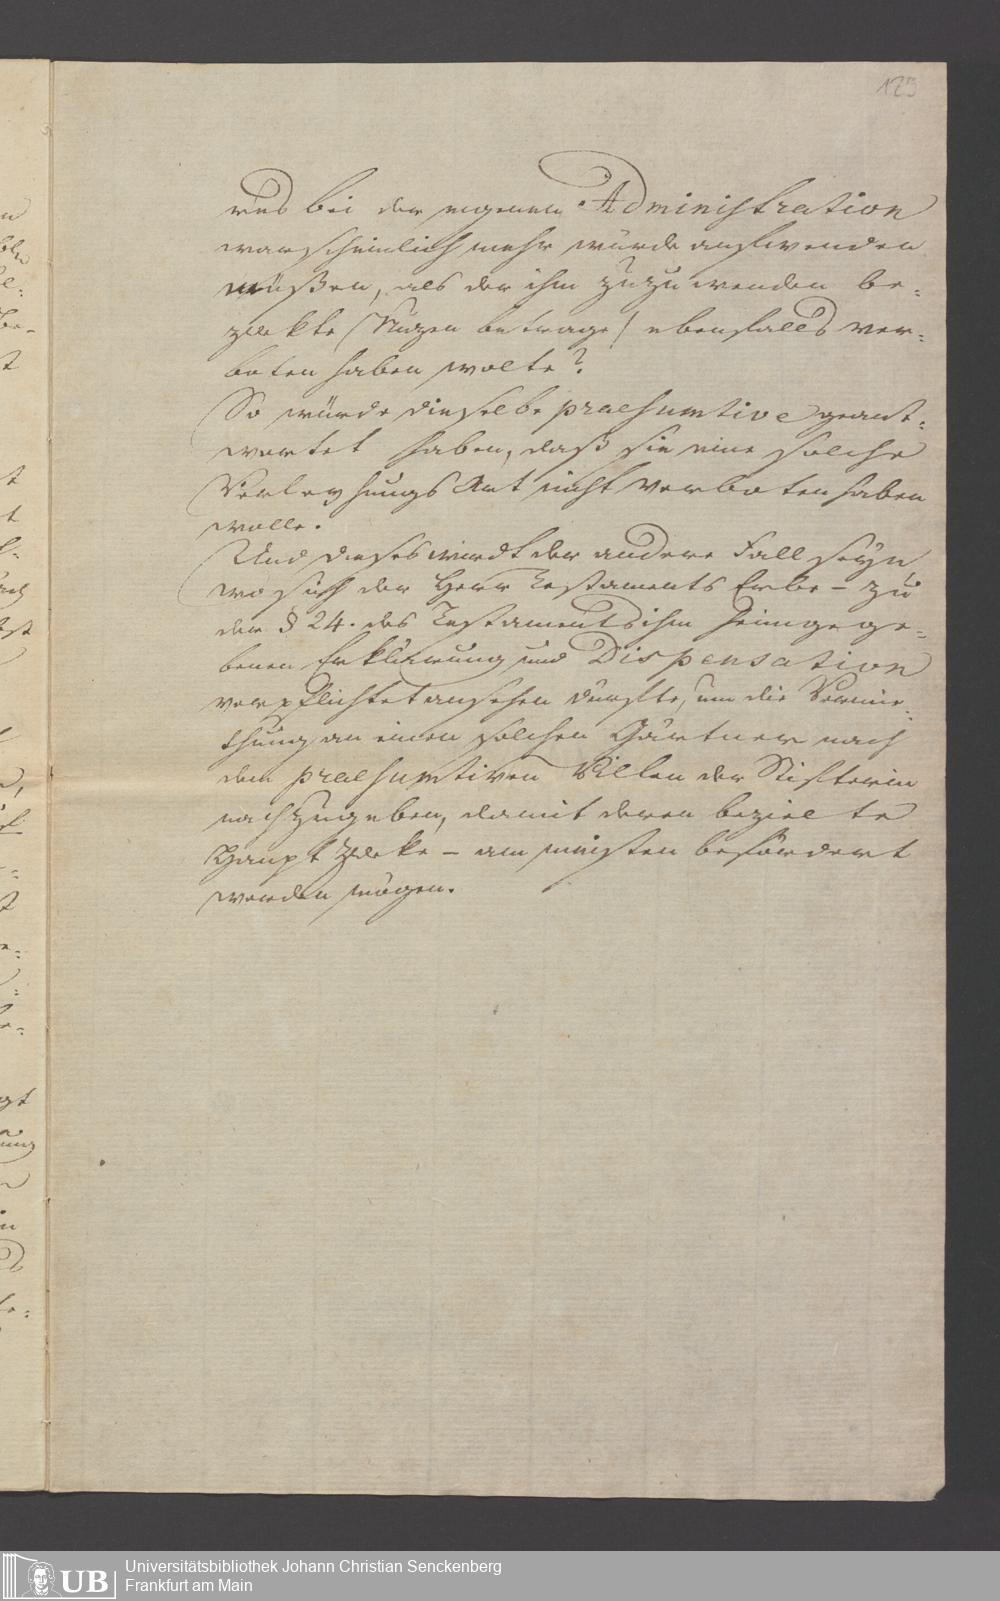 123
und bei der eigenen Administration
warscheinlich mehr würde aufwenden
müßen, als der ihm zuzuwenden be-
zwekte /Nuzen betrage/ ebenfalls ver-
boten haben wolte?
So würde dieselbe praesumtive geant-
wortet haben, daß sie eine solche
Verleyhungs Art nicht verboten haben
wolle.
Und dieses wirdt der andere Fall seyn
wo sich der Herr Testaments Erbe – zu
der § 24. des Testaments ihm heimgege-
benen Erklärung und Dispensation
verpflichtet ansehen dürfte, um die Vermie-
thung an einen solchen Gärtner nach
dem praesumtiven Willen der Stifterin
nachzugeben, damit deren bezielte
Haupt Zweke – am meisten befördert
werden mögen.
UB
Universitätsbibliothek Johann Christian Senckenberg
Frankfurt am Main